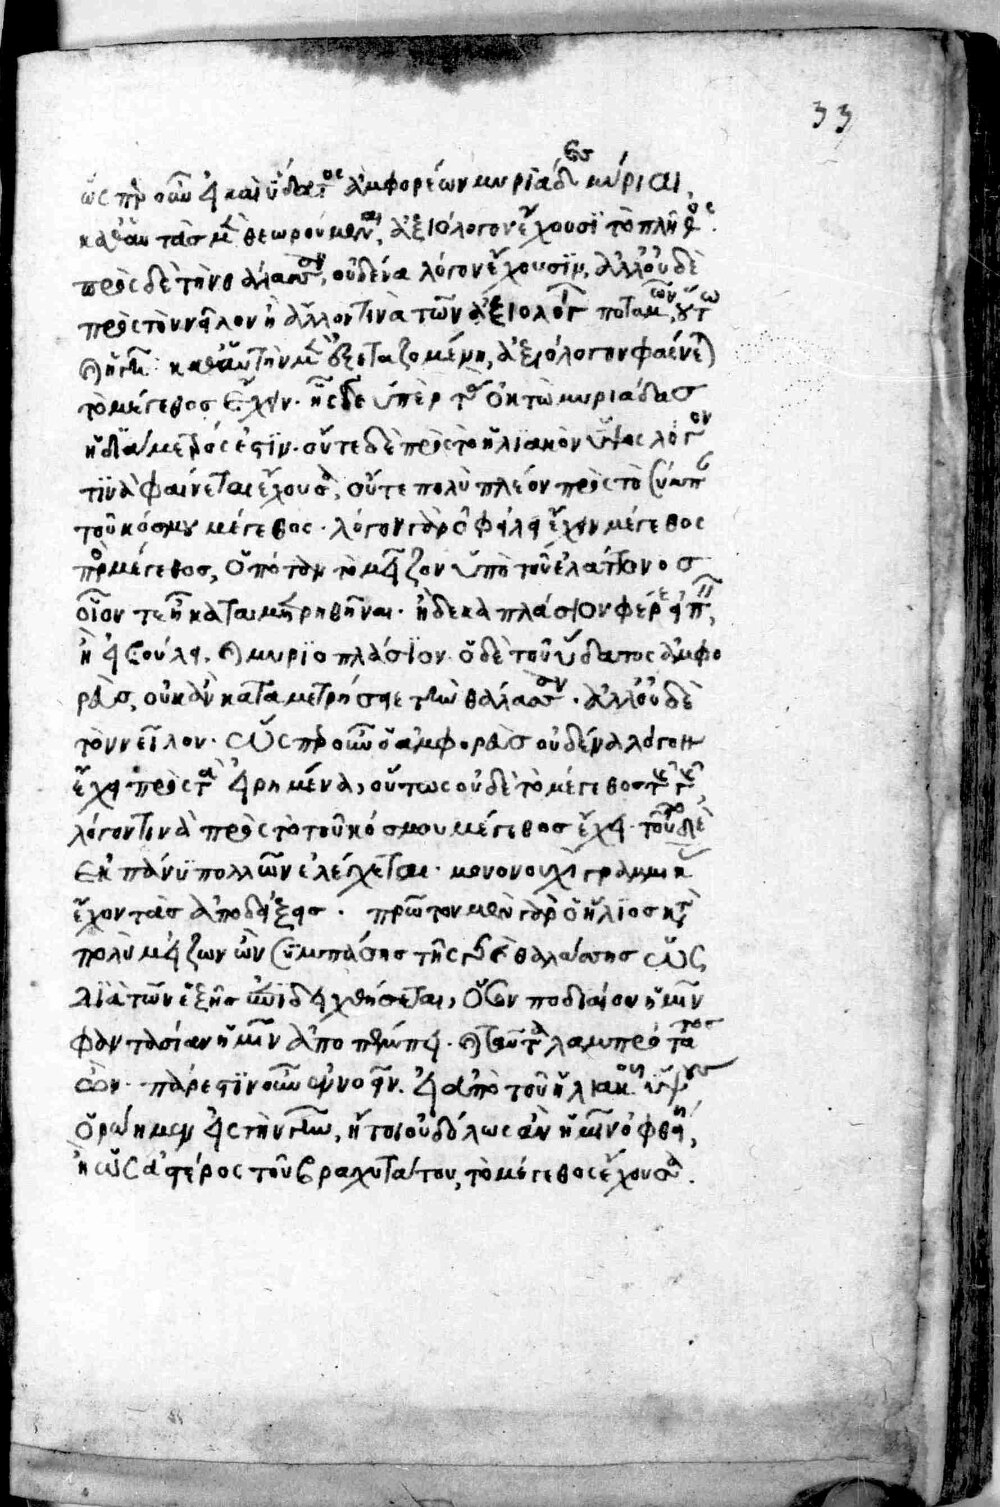 33
ὥσπερ οὖν εἰ καὶ ὕδατος ἀμφορέων μυριάδες μύριαι
καθ' αὑτὰς μὲν θεωρούμεναι, ἀξιόλογον ἔχουσι τὸ πλῆθος.
πρὸς δὲ τὴν θάλασσαν, οὐδένα λόγον ἔχουσιν, ἀλλ' οὐδὲ
πρὸς τὸν νεῖλον ἢ ἄλλον τινὰ τῶν ἀξιολόγων ποταμῶν, οὕτω
καὶ ἡ γῆ καθ' αὑτὴν μὲν ἐξεταζομένη, ἀξιόλογον φαίνεται
τὸ μέγεθος ἔχειν. ἥ γε δὲ ὑπὲρ τὰς ὀκτὼ μυριάδας
ἡ διάμετρός ἐστιν. οὔτε δὲ πρὸς τὸ ἡλιακὸν ὕψος λόγον
τινὰ φαίνεται ἔχουσα, οὔτε πολὺ πλέον πρὸς τὸ σύμπαν
τοῦ κόσμου μέγεθος. λόγον γὰρ ὀφείλει ἔχειν μέγεθος
πρὸς μέγεθος, ὁπόταν τὸ μεῖζον ὑπὸ τοῦ ἐλάττονος
οἷόν τε ᾖ καταμετρηθῆναι. ἢ δεκαπλάσιον φέρε εἰπεῖν,
ἢ εἰ βούλει, καὶ μυριοπλάσιον. ὁ δὲ τοῦ ὕδατος ἀμφο
ρεὺς, οὐκ ἂν καταμετρήσειε τὴν θάλασσαν. ἀλλ' οὐδὲ
τὸν νεῖλον. ὥσπερ οὖν ὁ ἀμφορεὺς οὐδένα λόγον
ἔχει πρὸς τὰ εἰρημένα, οὕτως οὐδὲ τὸ μέγεθος τῆς γῆς,
λόγον τινὰ πρὸς τὸ τοῦ κόσμου μέγεθος ἔχει. τοῦτο δὲ
ἐκ πάνυ πολλῶν ἐλέγχεται. μονονουχὶ γραμμικὰς
ἔχον τὰς ἀποδείξεις. πρῶτον μὲν γὰρ ὁ ἥλιος καὶ
πολὺ μείζων ὢν συμπάσης τῆς γῆς καὶ θαλάσσης ὡς
διὰ τῶν ἑξῆς ἐπιδειχθήσεται, ὅσον ποδιαίου ἡμῖν
φαντασίαν ἡμῖν ἀποπέμπει. καὶ ταῦτα λαμπρότατος
ὤν. πάρεστιν οὖν ἐννοεῖν. εἰ ἀπὸ τοῦ ἡλιακοῦ ὕψους
ὁρῴημεν εἰς τὴν γῆν, ἤτοι οὐδ' ὅλως ἂν ἡμῖν ὀφθείη,
ἢ ὡς ἀστέρος τοῦ βραχυτάτου, τὸ μέγεθος ἔχουσα.